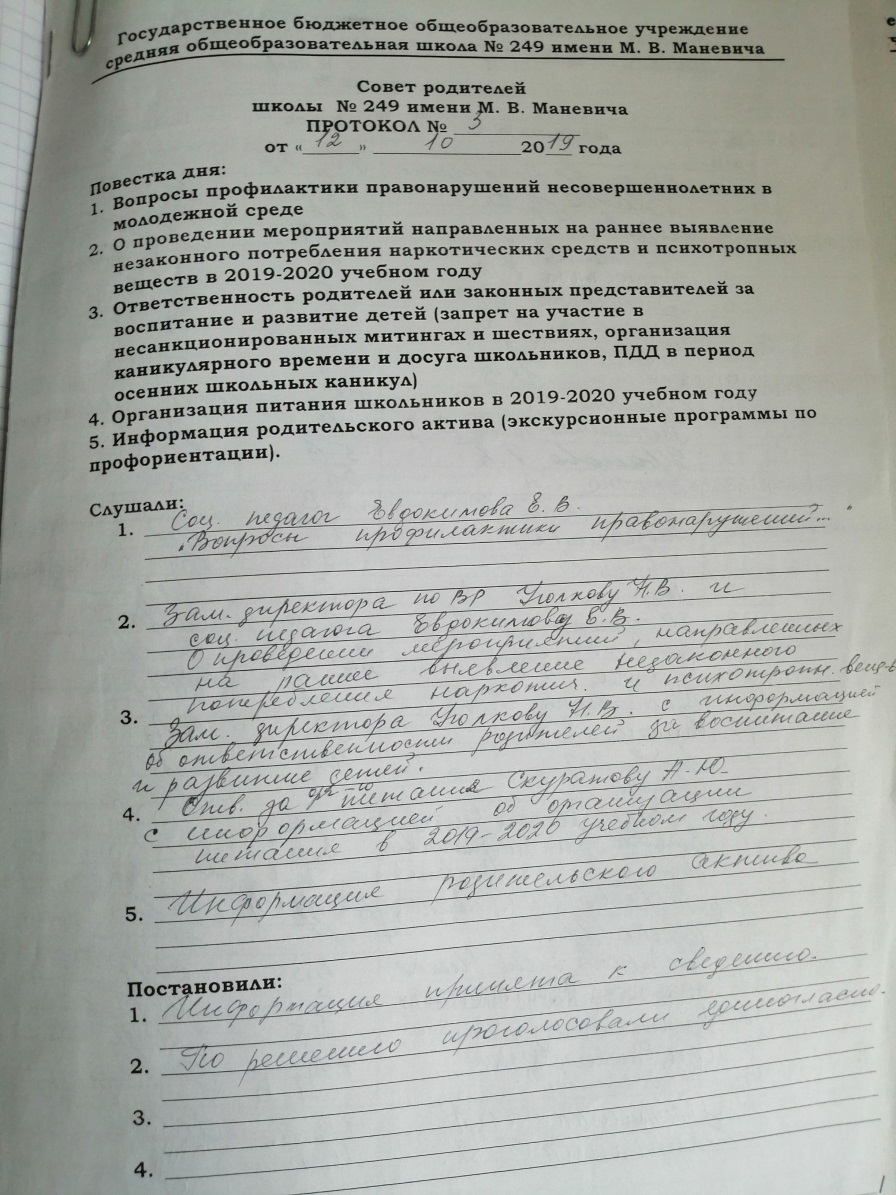 Государственное бюджетное общеобразовательное учреждение
средняя общеобразовательная школа № 249 имени М. В. Маневича
Совет родителей
школы № 249 имени М. В. Маневича
ПРОТОКОЛ № 3
от « 12 » 10 2019 года
Повестка дня:
1. Вопросы профилактики правонарушений несовершеннолетних в
молодежной среде
2. О проведении мероприятий направленных на раннее выявление
незаконного потребления наркотических средств и психотропных
веществ в 2019-2020 учебном году
3. Ответственность родителей или законных представителей за
воспитание и развитие детей (запрет на участие в
несанкционированных митингах и шествиях, организация
каникулярного времени и досуга школьников, ПДД в период
осенних школьных каникул)
4. Организация питания школьников в 2019-2020 учебном году
5. Информация родительского актива (экскурсионные программы по
профориентации).
Слушали:
1. Соц. педагог Евдокимова Е. В.
"Вопросы профилактики правонарушений..."
2. Зам. директора по ВР Уголкову Н.В. и
соц. педагога Евдокимову Е.В.
О проведении мероприятий, направленных
на раннее выявление незаконного
потребления наркотич. и психотропн. вещ-в
3. Зам. директора Уголкову Н.В. с информацией
об ответственности родителей за воспитание
и развитие детей.
4. Отв. за орг-ю питания Скуратову А.Ю.
с информацией об организации
питания в 2019-2020 учебном году.
5. Информация родительского актива
Постановили:
1. Информация принята к сведению.
2. По решению проголосовали единогласно.
3.
4.